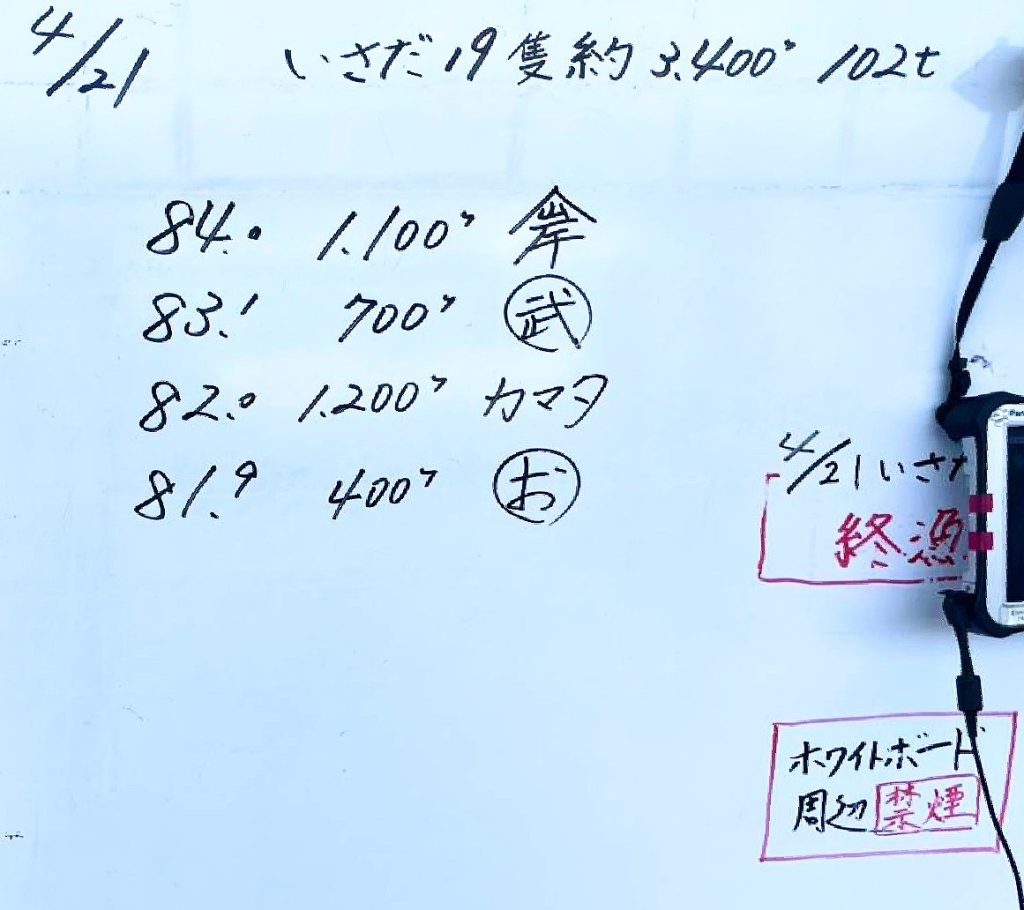 4/21 いさだ 19隻 約 3.400" 102t
84.0 1.100" 岸
83.1 700" 武
82.0 1.200" カマタ
81.9 400" お
4/21 いさ
終漁
ホワイトボード
周辺 禁煙